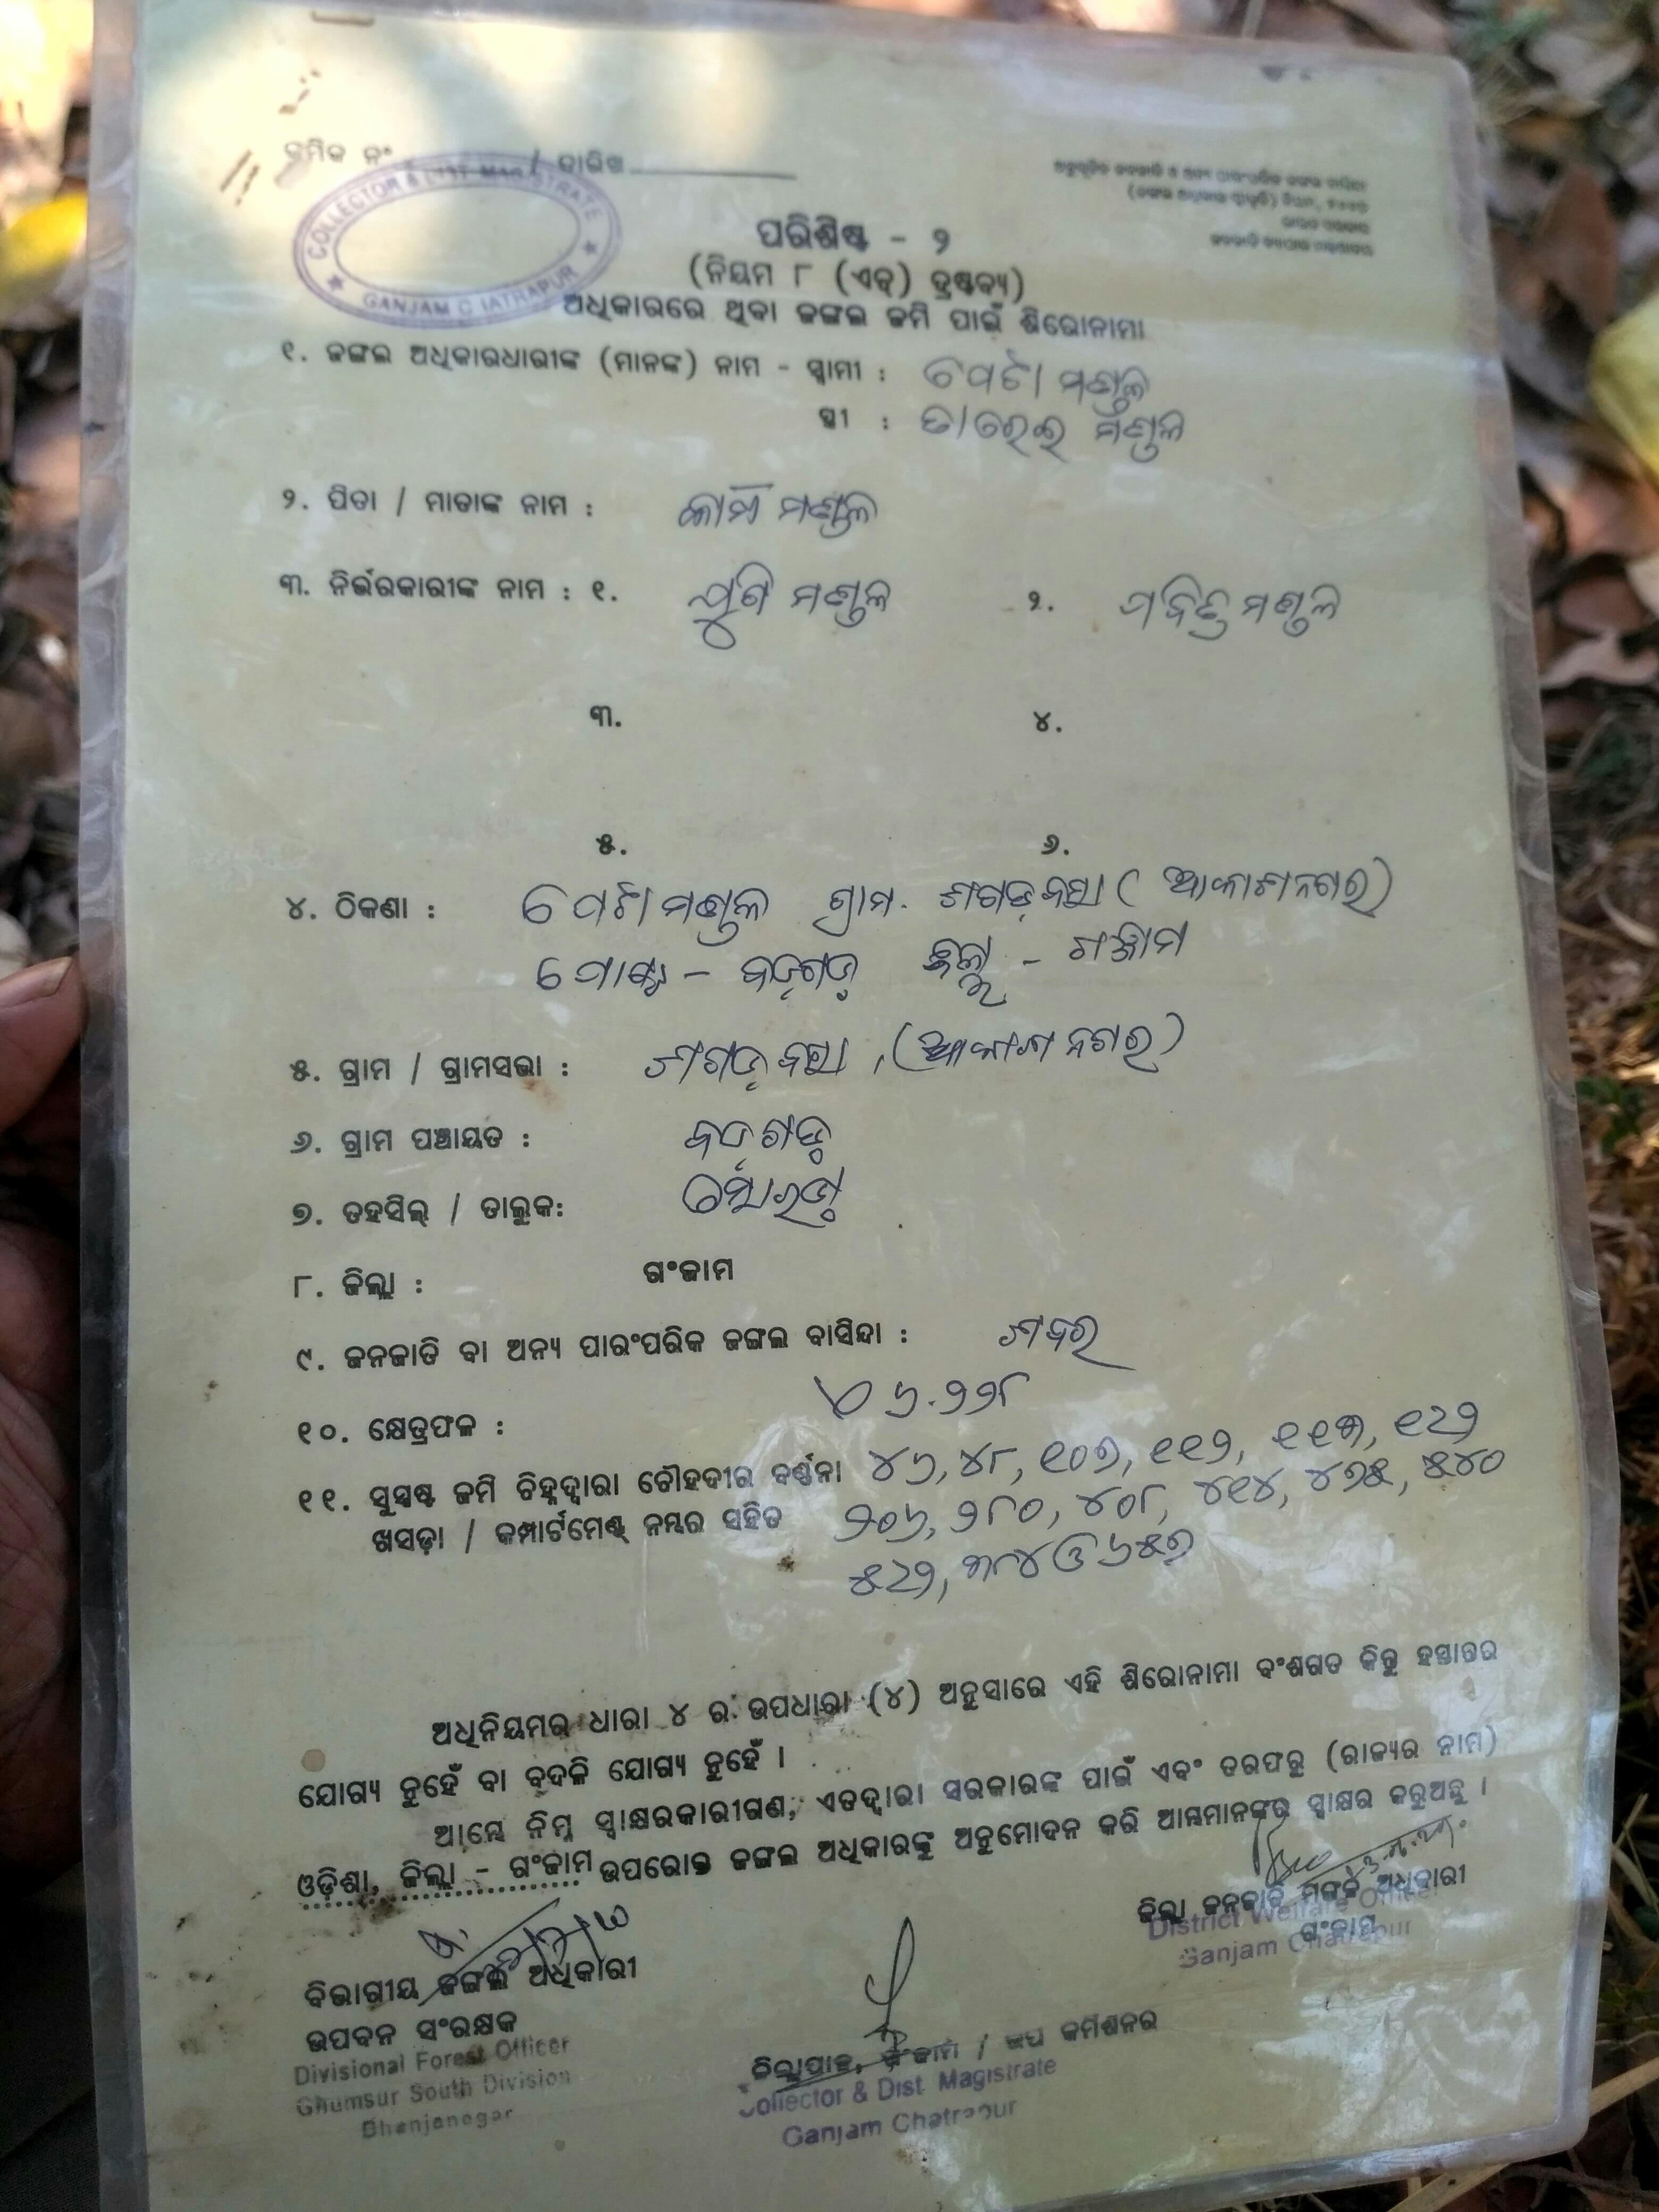 କ୍ରମିକ ନଂ / ତାରିଖ
COLLECTOR & DIST MAGISTRATE
GANJAM CHATRAPUR
ପରିଶିଷ୍ଟ - ୨
(ନିୟମ ୮ (ଏଚ୍) ଦ୍ରଷ୍ଟବ୍ୟ)
ଅଧିକାରରେ ଥିବା ଜଙ୍ଗଲ ଜମି ପାଇଁ ଶିରୋନାମା
୧. ଜଙ୍ଗଲ ଅଧିକାରଧାରୀଙ୍କ (ମାନଙ୍କ) ନାମ - ସ୍ଵାମୀ : ମଣ୍ଡଳ
ସ୍ତ୍ରୀ : ମଣ୍ଡଳ
୨. ପିତା / ମାତାଙ୍କ ନାମ : ମଣ୍ଡଳ
୩. ନିର୍ଭରକାରୀଙ୍କ ନାମ : ୧. ଯୁଗି ମଣ୍ଡଳ ୨. ମଣ୍ଡଳ
୩. ୪.
୫. ୬.
୪. ଠିକଣା : ମଣ୍ଡଳ ଗ୍ରାମ. ଶଗଡ଼ବସା (ଆକାଶନଗର)
ପୋଷ୍ଟ - ବଡ଼ଗଡ଼ - ଗଞ୍ଜାମ
୫. ଗ୍ରାମ / ଗ୍ରାମସଭା : ଶଗଡ଼ବସା, (ଆକାଶନଗର)
୬. ଗ୍ରାମ ପଞ୍ଚାୟତ : ବଡ଼ଗଡ଼
୭. ତହସିଲ୍ / ତାଲୁକ: ସୋରଡ଼ା
୮. ଜିଲ୍ଲା : ଗଂଜାମ
୯. ଜନଜାତି ବା ଅନ୍ୟ ପାରଂପରିକ ଜଙ୍ଗଲ ବାସିନ୍ଦା : ଶବର
୧୦. କ୍ଷେତ୍ରଫଳ : ୬.୨୨୮
୧୧. ସୁସ୍ପଷ୍ଟ ଜମି ଚିହ୍ନଦ୍ୱାରା ଚୌହଦ୍ଦୀର ବର୍ଣ୍ଣନା ୪୬, ୪୮, ୧୦୭, ୧୧୨, ୧୧୩, ୧୨୨
ଖସଡ଼ା / କମ୍ପାର୍ଟମେଣ୍ଟ୍ ନମ୍ବର ସହିତ ୨୦୬, ୨୮୦, ୪୦୮, ୪୧୪, ୪୭୫, ୫୪୦
୫୨୨, ୩୮୪ ଓ ୬୫୭
ଅଧିନିୟମର ଧାରା ୪ ର ଉପଧାରା (୪) ଅନୁସାରେ ଏହି ଶିରୋନାମା ବଂଶଗତ କିନ୍ତୁ ହସ୍ତାନ୍ତର
ଯୋଗ୍ୟ ନୁହେଁ ବା ବଦଳି ଯୋଗ୍ୟ ନୁହେଁ ।
ଆମ୍ଭେ ନିମ୍ନ ସ୍ୱାକ୍ଷରକାରୀଗଣ, ଏତଦ୍ୱାରା ସରକାରଙ୍କ ପାଇଁ ଏବଂ ତରଫରୁ (ରାଜ୍ୟର ନାମ)
ଓଡ଼ିଶା, ଜିଲ୍ଲା - ଗଂଜାମ ଉପରୋକ୍ତ ଜଙ୍ଗଲ ଅଧିକାରଙ୍କୁ ଅନୁମୋଦନ କରି ଆମ୍ଭମାନଙ୍କର ସ୍ୱାକ୍ଷର କରୁଅଛୁ ।
ଜିଲ୍ଲା ଜନଜାତି ମଙ୍ଗଳ ଅଧିକାରୀ
ଗଂଜାମ
District Welfare Officer
Ganjam Chatrapur
ବିଭାଗୀୟ ଜଙ୍ଗଲ ଅଧିକାରୀ
ଉପବନ ସଂରକ୍ଷକ
Divisional Forest Officer
Ghumsur South Division
Bhanjanagar
ଜିଲ୍ଲାପାଳ, ଗଂଜାମ / ଉପ କମିଶନର
Collector & Dist. Magistrate
Ganjam Chatrapur